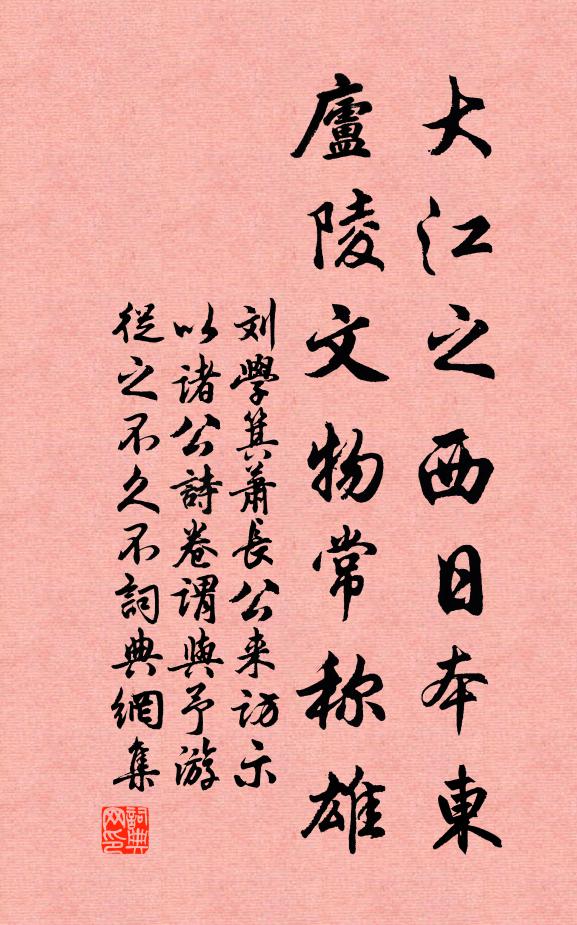 大江之西日本東
廬陵文物常称雄
刘學箕蕭長公来访示
以诸公詩卷謂與予游
從之不久不詞典網集
詞典网印